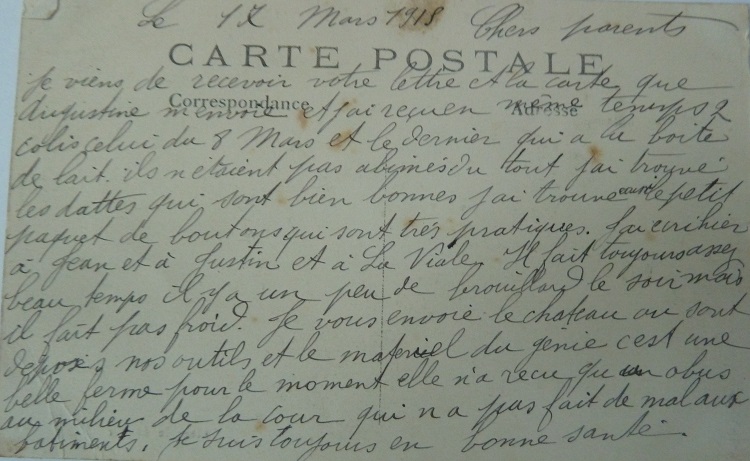 Le 17 Mars 1918 Chers parents
CARTE POSTALE
Je viens de recevoir votre lettre et la carte que
Correspondance Adresse
Augustine m'envoie et j'ai reçu en même temps 2
colis celui du 8 Mars et le dernier qui a la boite
de lait. ils n etaient pas abimés du tout j'ai trouvé
les dattes qui sont bien bonnes j'ai trouvé aussi le petit
paquet de boutons qui sont très pratiques. J'ai ecrit hier
à Jean et à Justin et à La Viale. Il fait toujours assez
beau temps il y a un peu de brouillard le soir mais
il fait pas froid. Je vous envoie le chateau ou sont
deposés nos outils et le materiel du genie c'est une
belle ferme pour le moment elle n'a recu qu'un obus
au milieu de la cour qui n a pas fait de mal aux
batiments. Je suis toujours en bonne santé.